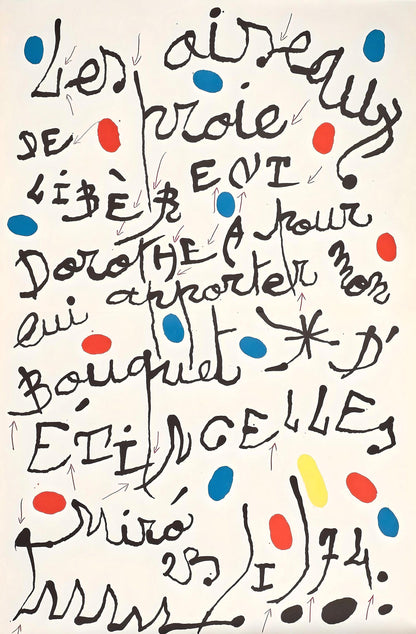 Les oiseaux
DE proie
LiBÈRENT
DoroTHEA pour
lui apporter mon
Bouquet D'
ÉTiNCELLES
Miró
23 I 74.